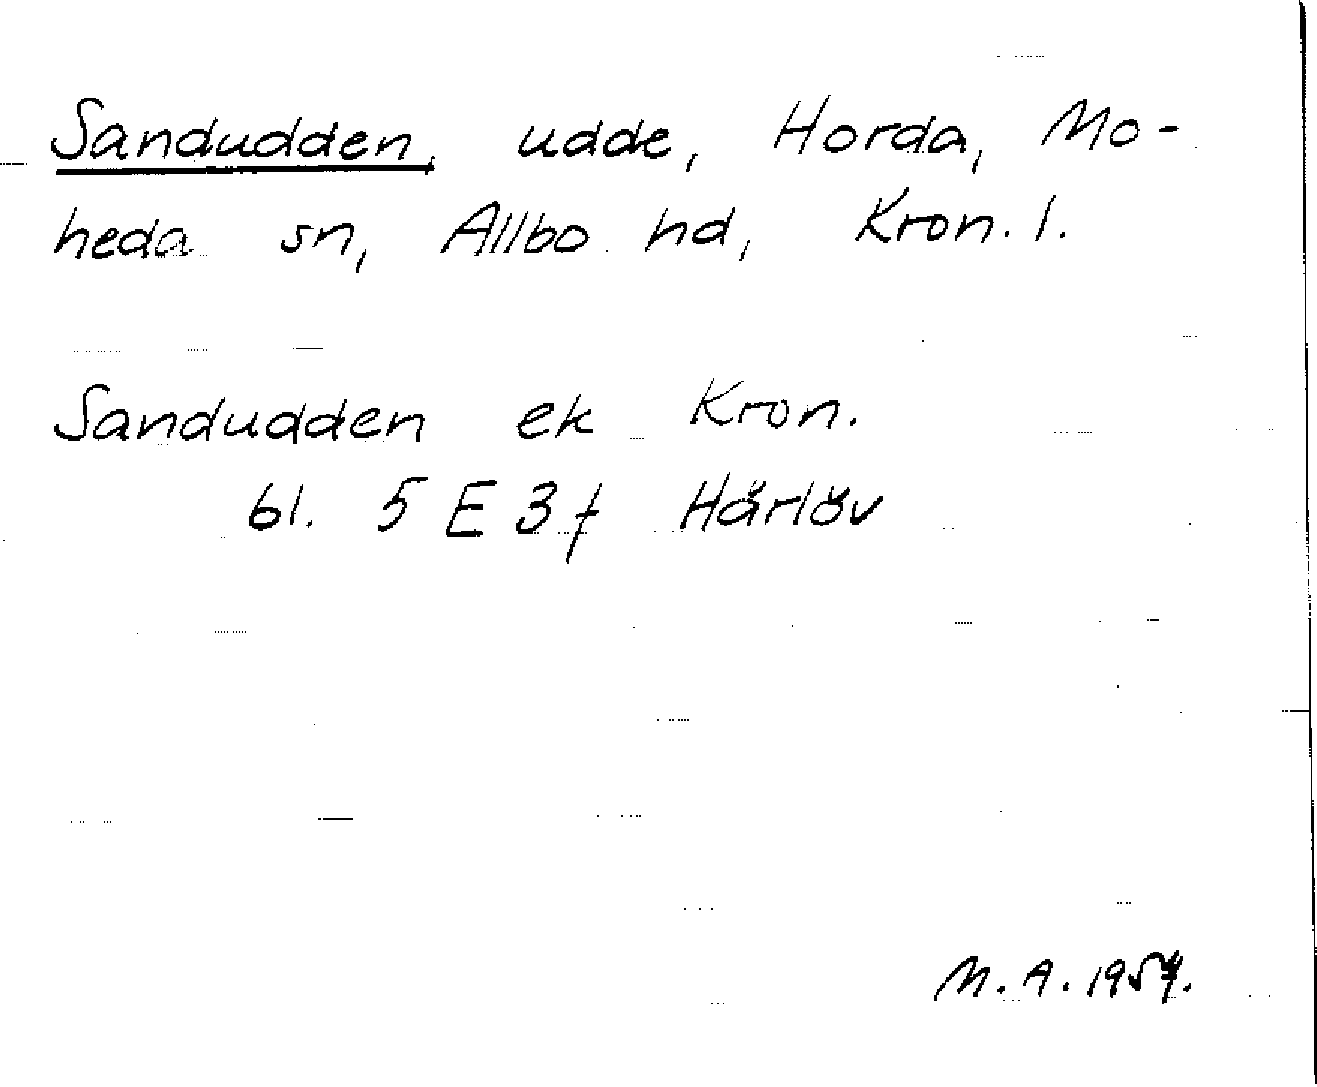 Sandudden, udde, Horda, Mo-
heda sn, Allbo hd, Kron. l.
Sandudden ek Kron.
bl. 5 E 3 f Härlöv
M. A.